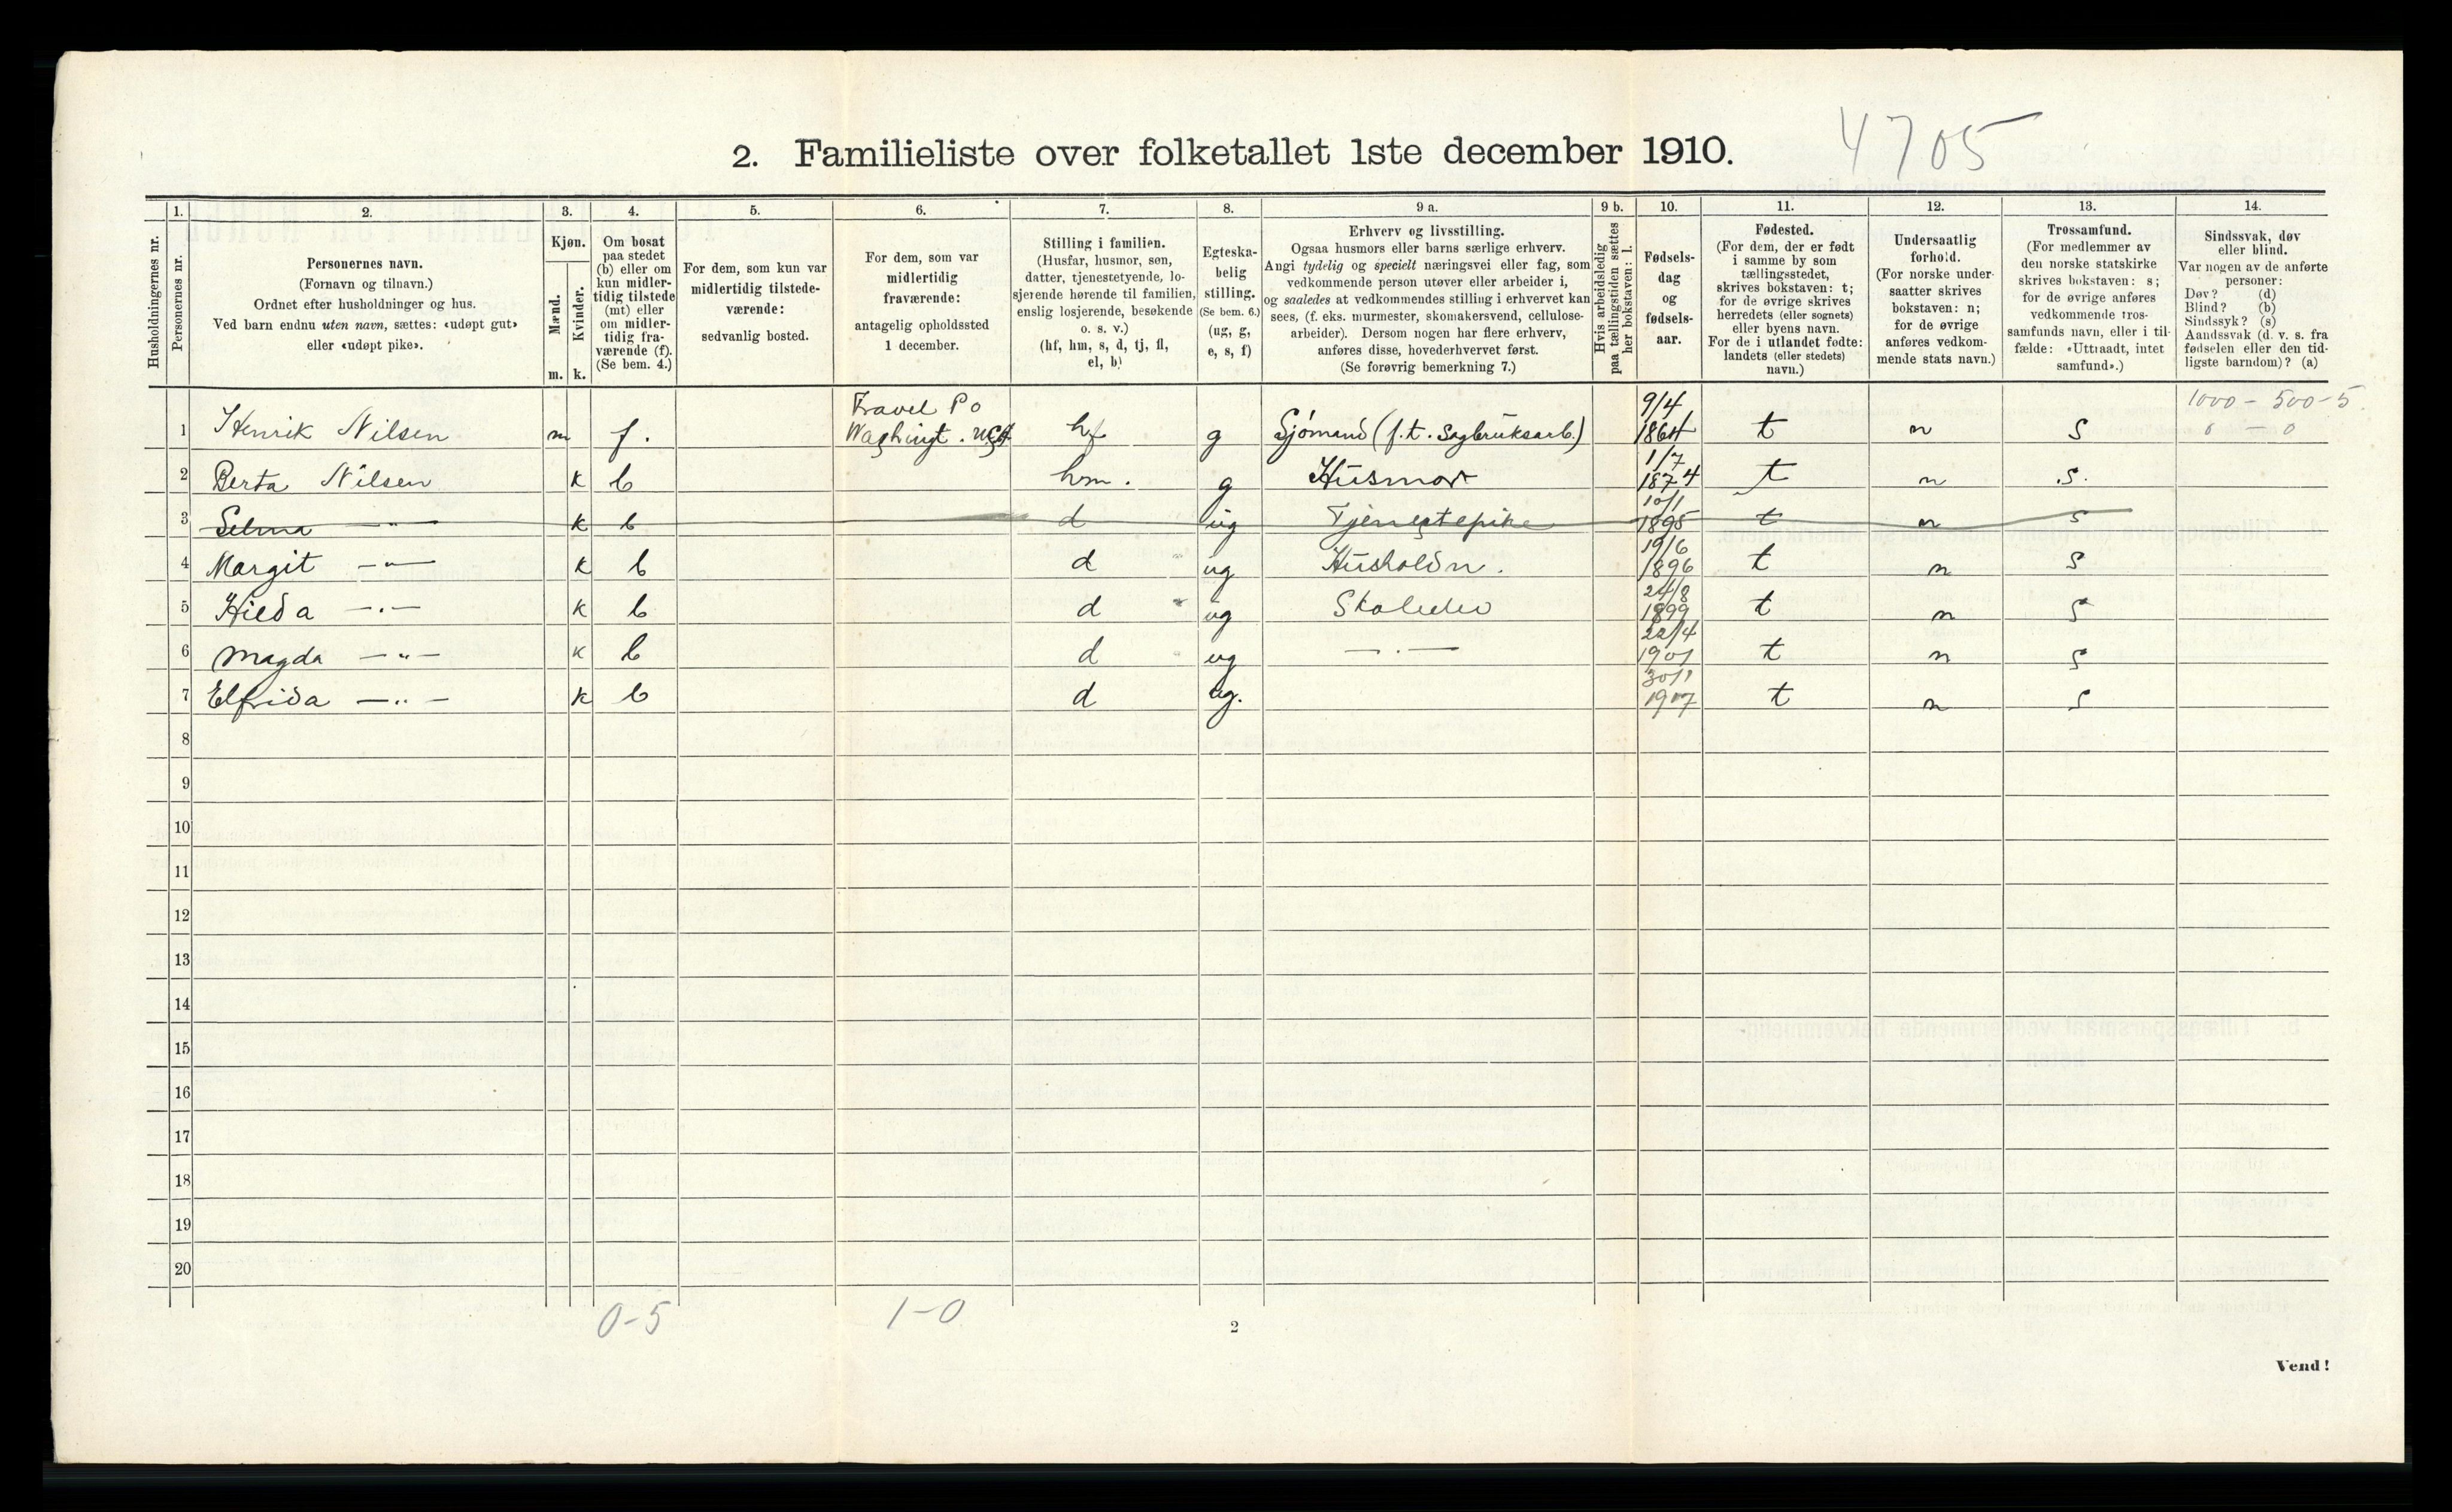 4705
2. Familieliste over folketallet 1ste december 1910.
Husholdningernes nr.
1.
Personernes nr.
2.
Personernes navn.
(Fornavn og tilnavn.)
Ordnet efter husholdninger og hus.
Ved barn endnu uten navn, sættes: «udøpt gut»
eller «udøpt pike».
3.
Kjøn.
Mænd.
Kvinder.
m. k.
4.
Om bosat
paa stedet
(b) eller om
kun midler-
tidig tilstede
(mt) eller
om midler-
tidig fra-
værende (f).
(Se bem. 4.)
5.
For dem, som kun var
midlertidig tilstede-
værende:
sedvanlig bosted.
6.
For dem, som var
midlertidig
fraværende:
antagelig opholdssted
1 december.
7.
Stilling i familien.
(Husfar, husmor, søn,
datter, tjenestetyende, lo-
sjerende hørende til familien,
enslig losjerende, besøkende
o. s. v.)
(hf, hm, s, d, tj, fl,
el, b)
8.
Egteska-
belig
stilling.
(Se bem. 6.)
(ug, g,
e, s, f)
9 a.
Erhverv og livsstilling.
Ogsaa husmors eller barns særlige erhverv.
Angi tydelig og specielt næringsvei eller fag, som
vedkommende person utøver eller arbeider i,
og saaledes at vedkommendes stilling i erhvervet kan
sees, (f. eks. murmester, skomakersvend, cellulose-
arbeider). Dersom nogen har flere erhverv,
anføres disse, hovederhvervet først.
(Se forøvrig bemerkning 7.)
9 b.
Hvis arbeidsledig
paa tællingstiden sættes
her bokstaven: l.
10.
Fødsels-
dag
og
fødsels-
aar.
11.
Fødested.
(For dem, der er født
i samme by som
tællingsstedet,
skrives bokstaven: t;
for de øvrige skrives
herredets (eller sognets)
eller byens navn.
For de i utlandet fødte:
landets (eller stedets)
navn.)
12.
Undersaatlig
forhold.
(For norske under-
saatter skrives
bokstaven: n;
for de øvrige
anføres vedkom-
mende stats navn.)
13.
Trossamfund.
(For medlemmer av
den norske statskirke
skrives bokstaven: s;
for de øvrige anføres
vedkommende tros-
samfunds navn, eller i til-
fælde: «Uttraadt, intet
samfund».)
14.
Sindssvak, døv
eller blind.
Var nogen av de anførte
personer:
Døv? (d)
Blind? (b)
Sindssyk? (s)
Aandssvak (d. v. s. fra
fødselen eller den tid-
ligste barndom)? (a)
Travel Po 9/4 1000 - 500 - 5
1 Henrik Nilsen m f. Washingt. USA hf g Sjömand (f.t. Sagbruksarb.) 1864 t n s 0 - 0
1/7
2 Berta Nilsen k b hm. g Husmor 1874 t n s.
10/1
3 Selma —"— k b d ug Tjenestepike 1895 t n s
19/6
4 Margit —"— k b d ug Husholdn. 1896 t n s
24/8
5 Hilda —"— k b d ug Skoleelev 1899 t n s
22/4
6 Magda —"— k b d ug —"— 1901 t n s
30/1
7 Elfrida —"— k b d ug. 1907 t n s
8
9
10
11
12
13
14
15
16
17
18
19
20
0-5 1-0
2
Vend!